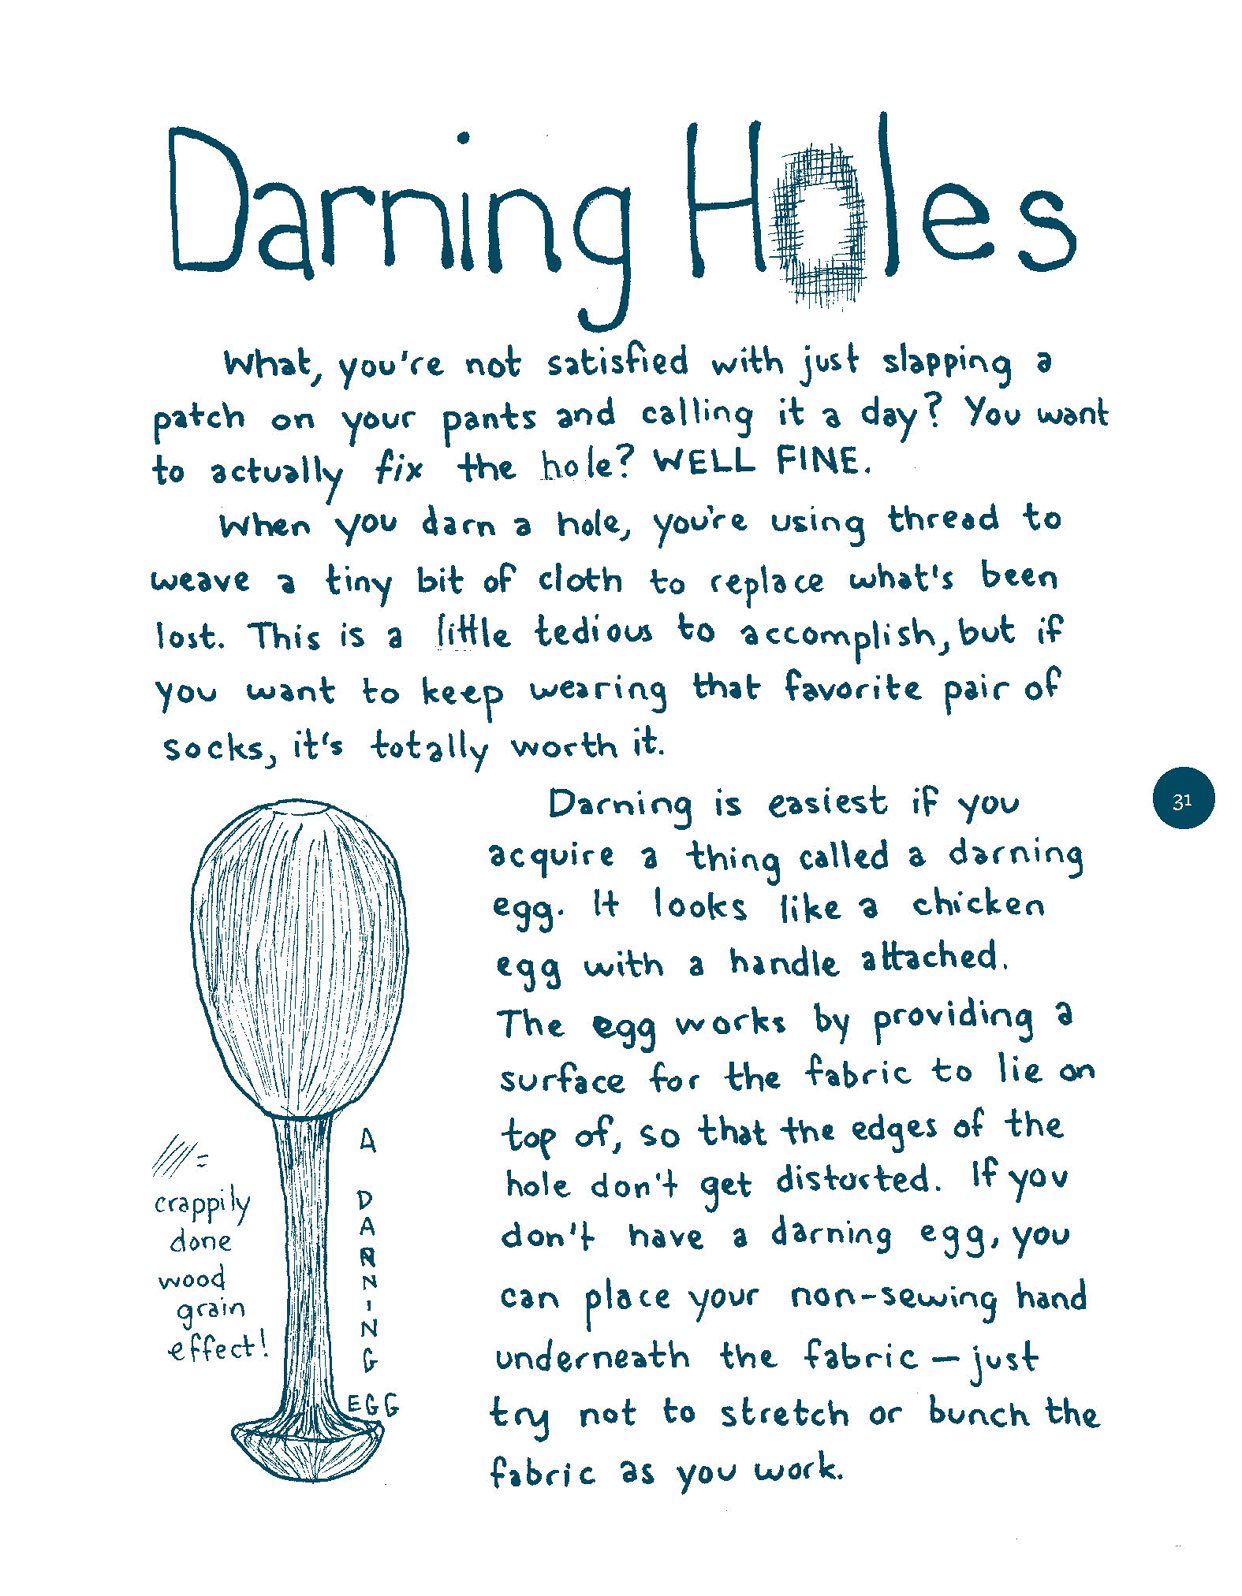 Darning Holes
What, you're not satisfied with just slapping a
patch on your pants and calling it a day? You want
to actually fix the hole? WELL FINE.
When you darn a hole, you're using thread to
weave a tiny bit of cloth to replace what's been
lost. This is a little tedious to accomplish, but if
you want to keep wearing that favorite pair of
socks, it's totally worth it.
Darning is easiest if you
acquire a thing called a darning
egg. It looks like a chicken
egg with a handle attached.
The egg works by providing a
surface for the fabric to lie on
top of, so that the edges of the
hole don't get distorted. If you
don't have a darning egg, you
can place your non-sewing hand
underneath the fabric — just
try not to stretch or bunch the
fabric as you work.
=
crappily
done
wood
grain
effect!
A
DARNING
EGG
31